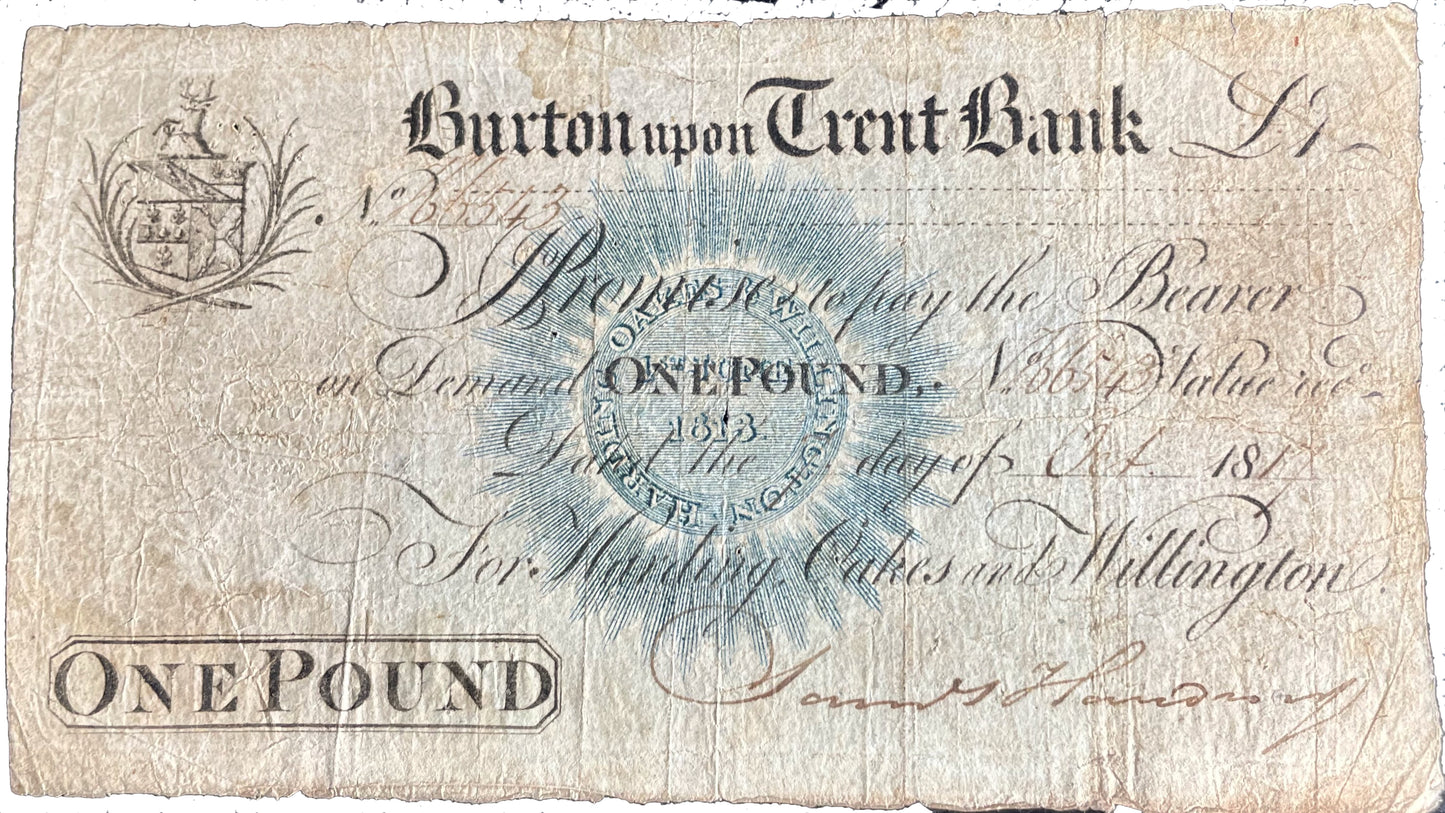 Burton upon Trent Bank £1
No.
I Promise to pay the Bearer
on Demand ONE POUND, No. 6654 Value recd
Dated the day of Oct 1817
For Harding, Oakes and Willington
ONE POUND
HARDING OAKES & WILLINGTON
1818